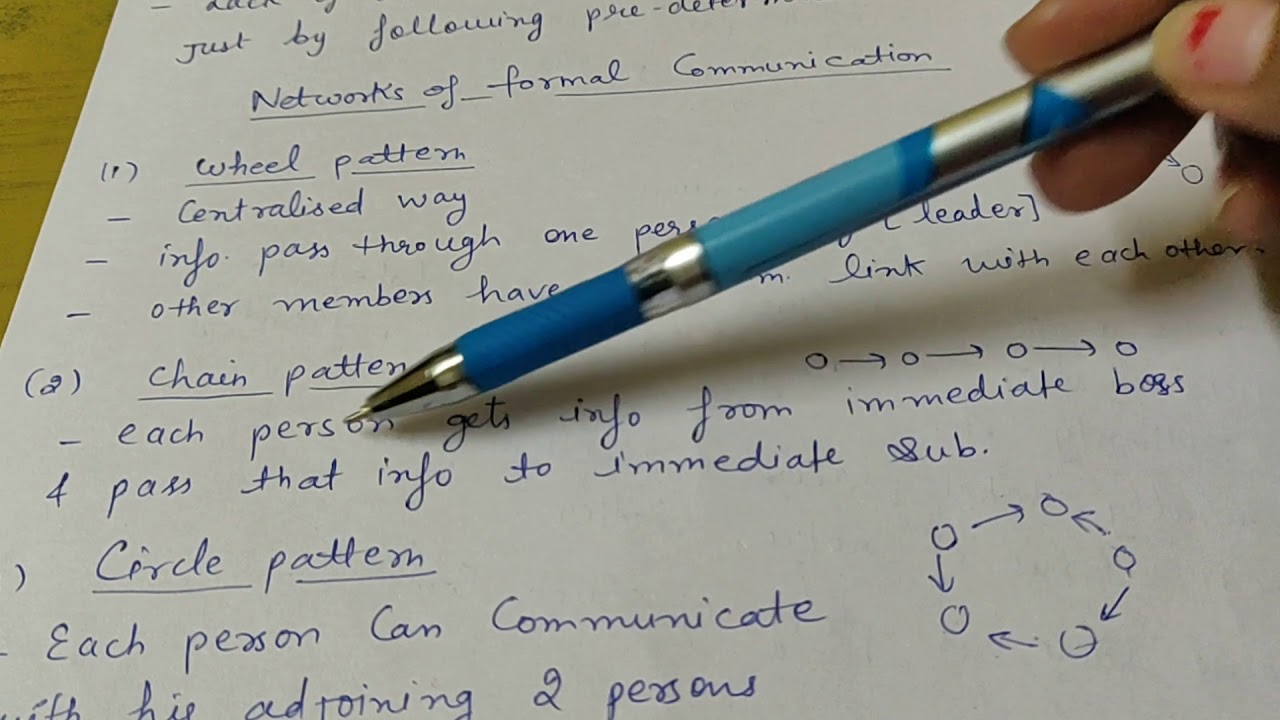 just by following pre-deter
Networks of formal Communication
(1) Wheel pattern
- Centralised way
- info. pass through one [leader]
- other members have link with each other.
(2) Chain patter
- each person gets info from immediate boss
& pass that info to immediate sub.
) Circle pattern
- Each person Can Communicate
with his adjoining 2 persons